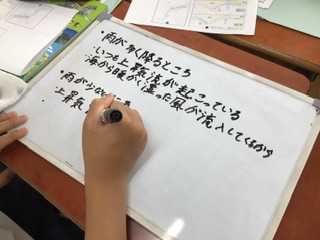 ・雨が多く降るところ
・いつも上昇気流が起こっている
海から暖かく湿った風が流入してくるから
・雨が少な
・上昇気